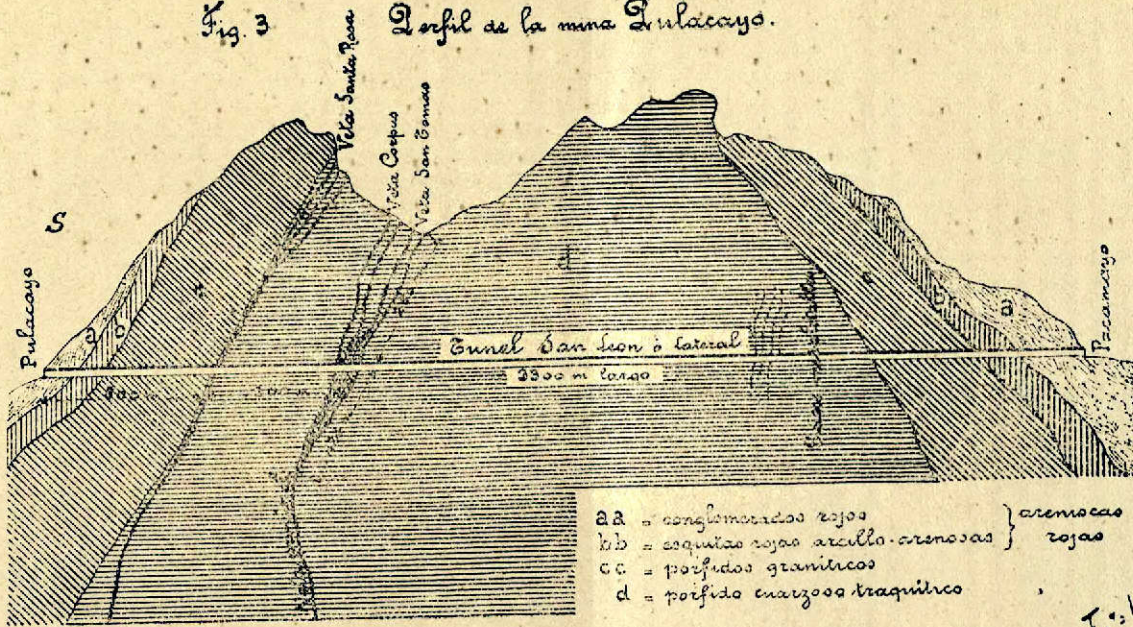 Fig. 3
Perfil de la mina Pulacayo.
Veta Santa Rosa
Veta Corpus
Veta San Tomas
S
Pulacayo
a
c
d
c
b
a
Pacamayo
Tunel San Leon ó lateral
3300 m largo
aa = conglomerados rojos
bb = esquitas rojas arcillo-arenosas } areniscas rojas
cc = porfidos graníticos
d = porfido cuarzoso traquítico